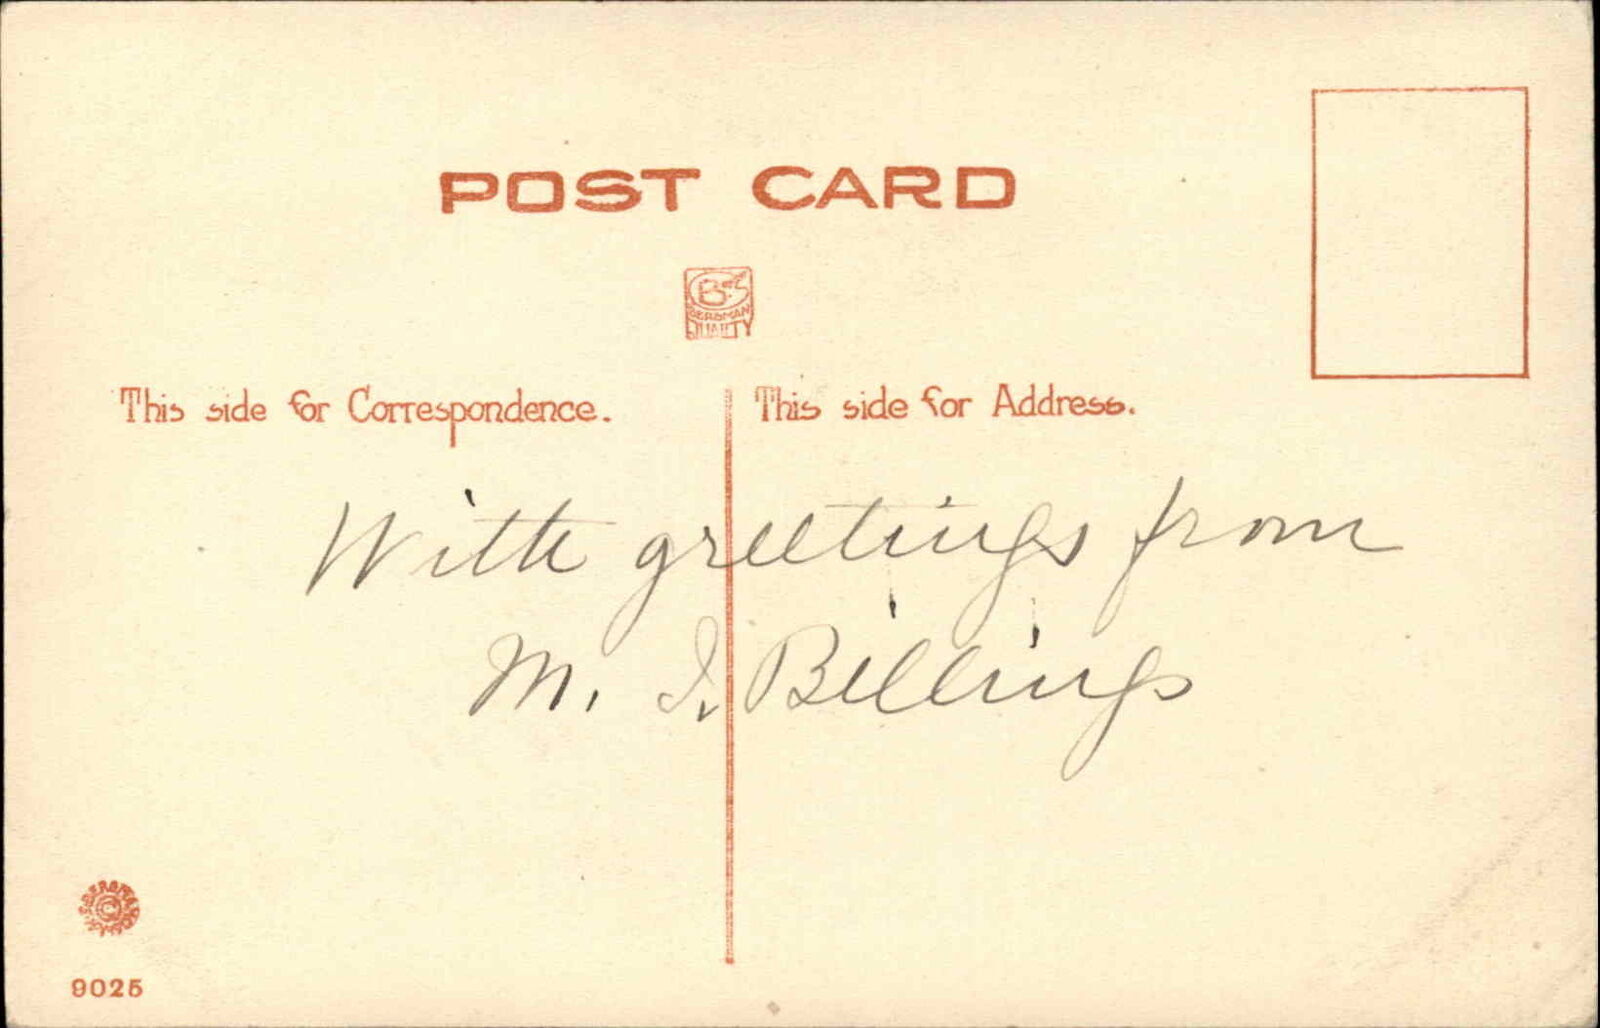 POST CARD
BERGMAN
QUALITY
This side for Correspondence.
This side for Address.
With greetings from
M. I. Billings
9025